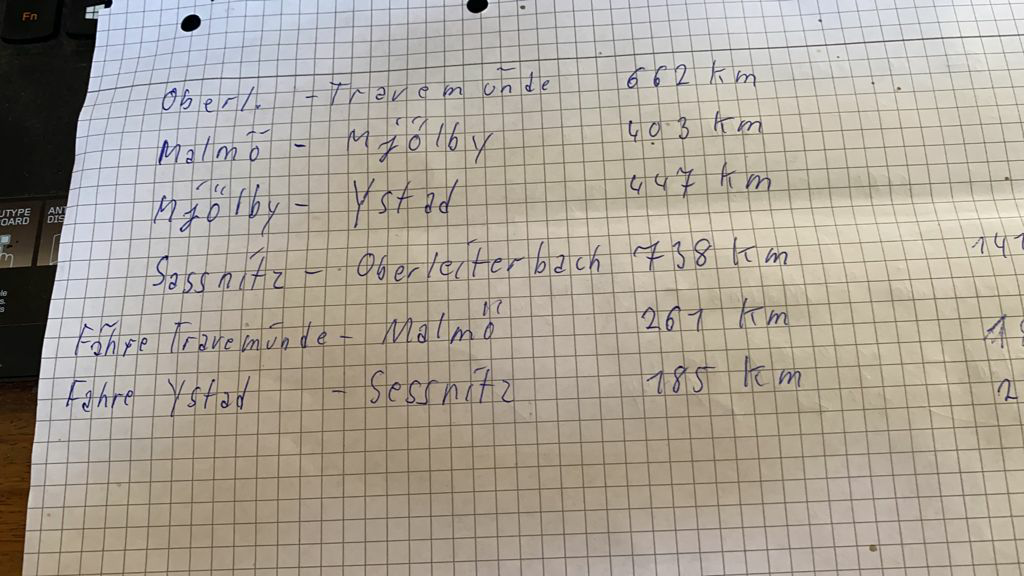 Fn
Oberl. - Travemünde 662 km
Malmö - Mjölby 403 km
Mjölby - Ystad 447 km
UTYPE
OARD
ANT
DIS
Sassnitz - Oberleiterbach 738 km 141
Fähre Travemünde - Malmö 261 km 18
Fähre Ystad - Sessnitz 185 km 2